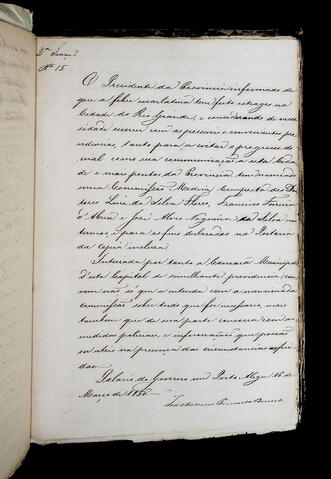 2ª Secçaõ
Nº 15
O Presidente da Provincia informado de
que a febre escarlatina tem feito estragos na
Cidade do Rio Grande, e considerando de neces
sidade occorrer com as possiveis e convenientes pro
videncias, tanto para se evitar o progresso do
mal como sua communicação a esta Cida
de e mais pontos da Provincia tem nomeado
uma Commissão Medica composta dos Dou
tores Luis da Silva Flores, Francisco Ferreira
d'Abreu e José Alves Nogueira da Silva
para os fins declarados na Portaria
da copia inclusa.
Inteirada por tanto a Camara Municipal
d'esta Capital de semelhante providencia, con
vem não só que se entenda com a mencionada
commissão sobre tudo que for necessario, mas
tambem que de sua parte concorra com as
medidas policiaes, e informações que possão
ser uteis na presença das circunstancias referi
das.
Palacio do Governo em Porto Alegre 16 de
Março de 1850.